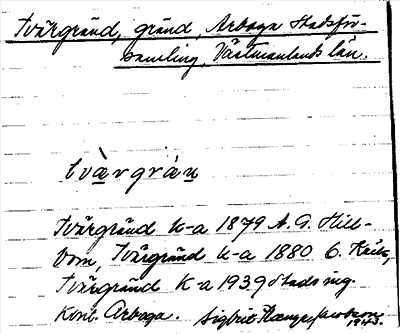 Tvärgränd, gränd, Arboga Stadsför-
samling, Västmanlands län.
tvärgrän
Tvärgränd k-a 1879 A. G. Hill-
bom, Tvärgränd k-a 1880 C.
Tvärgränd k-a 1939 Stadsing.
Kont. Arboga. Sigbrit Jacobson
1943.